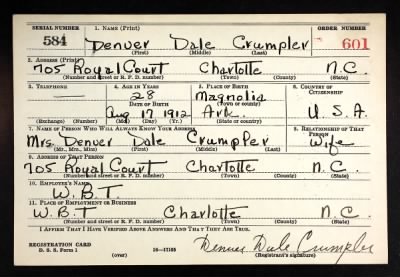 SERIAL NUMBER 1. NAME (Print) ORDER NUMBER
584 Denver Dale Crumpler 601
(First) (Middle) (Last)
2. ADDRESS (Print)
705 Royal Court Charlotte N.C.
(Number and street or R. F. D. number) (Town) (County) (State)
3. TELEPHONE 4. AGE IN YEARS 5. PLACE OF BIRTH 6. COUNTRY OF CITIZENSHIP
— 28 Magnolia
DATE OF BIRTH (Town or county)
Aug 17 1912 Ark. U.S.A.
(Exchange) (Number) (Mo.) (Day) (Yr.) (State or country)
7. NAME OF PERSON WHO WILL ALWAYS KNOW YOUR ADDRESS 8. RELATIONSHIP OF THAT PERSON
Mrs. Denver Dale Crumpler Wife
(Mr., Mrs., Miss) (First) (Middle) (Last)
9. ADDRESS OF THAT PERSON
705 Royal Court Charlotte N.C.
(Number and street or R. F. D. number) (Town) (County) (State)
10. EMPLOYER'S NAME
W.B.T.
11. PLACE OF EMPLOYMENT OR BUSINESS
W.B.T. Charlotte N.C.
(Number and street or R. F. D. number) (Town) (County) (State)
I AFFIRM THAT I HAVE VERIFIED ABOVE ANSWERS AND THAT THEY ARE TRUE.
REGISTRATION CARD
D. S. S. Form 1 16—17105 Denver Dale Crumpler
(over) (Registrant's signature)